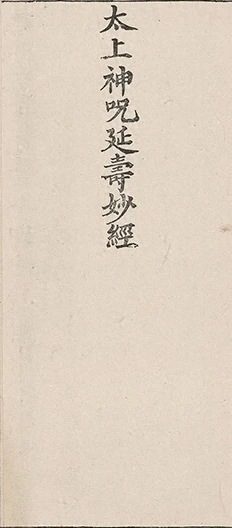 太上神咒延壽妙經